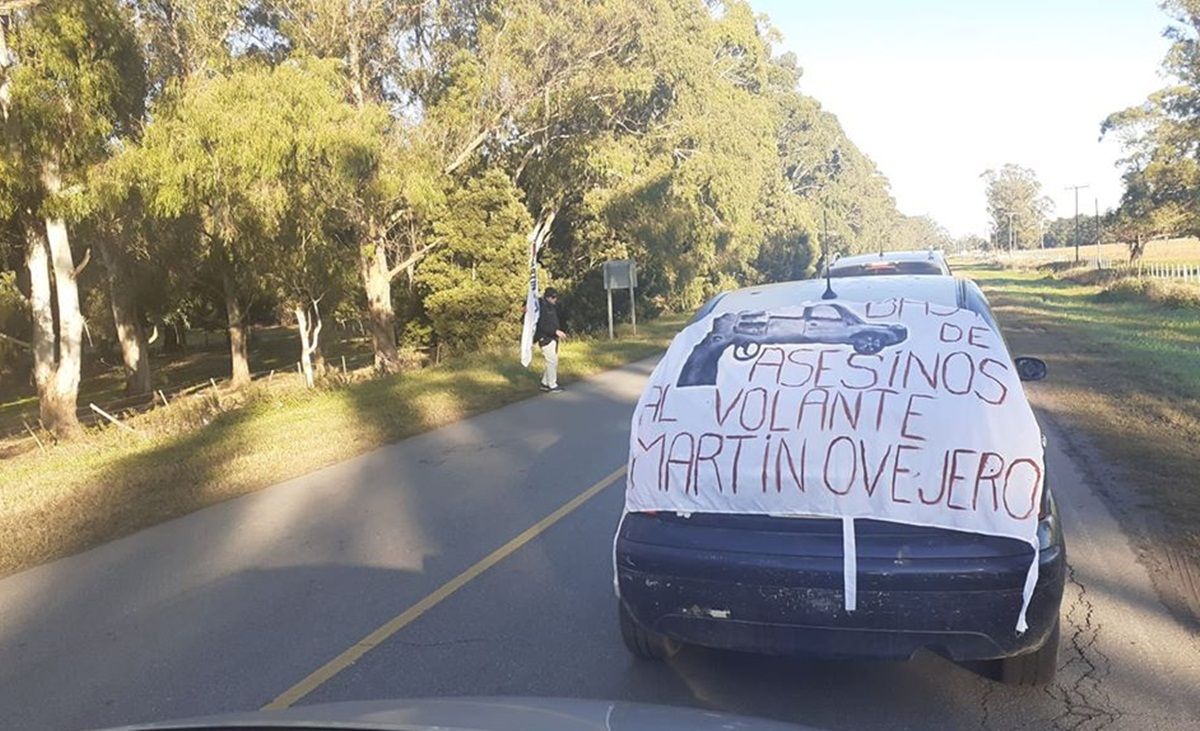 DE
ASESINOS
AL VOLANTE
MARTÍN OVEJERO